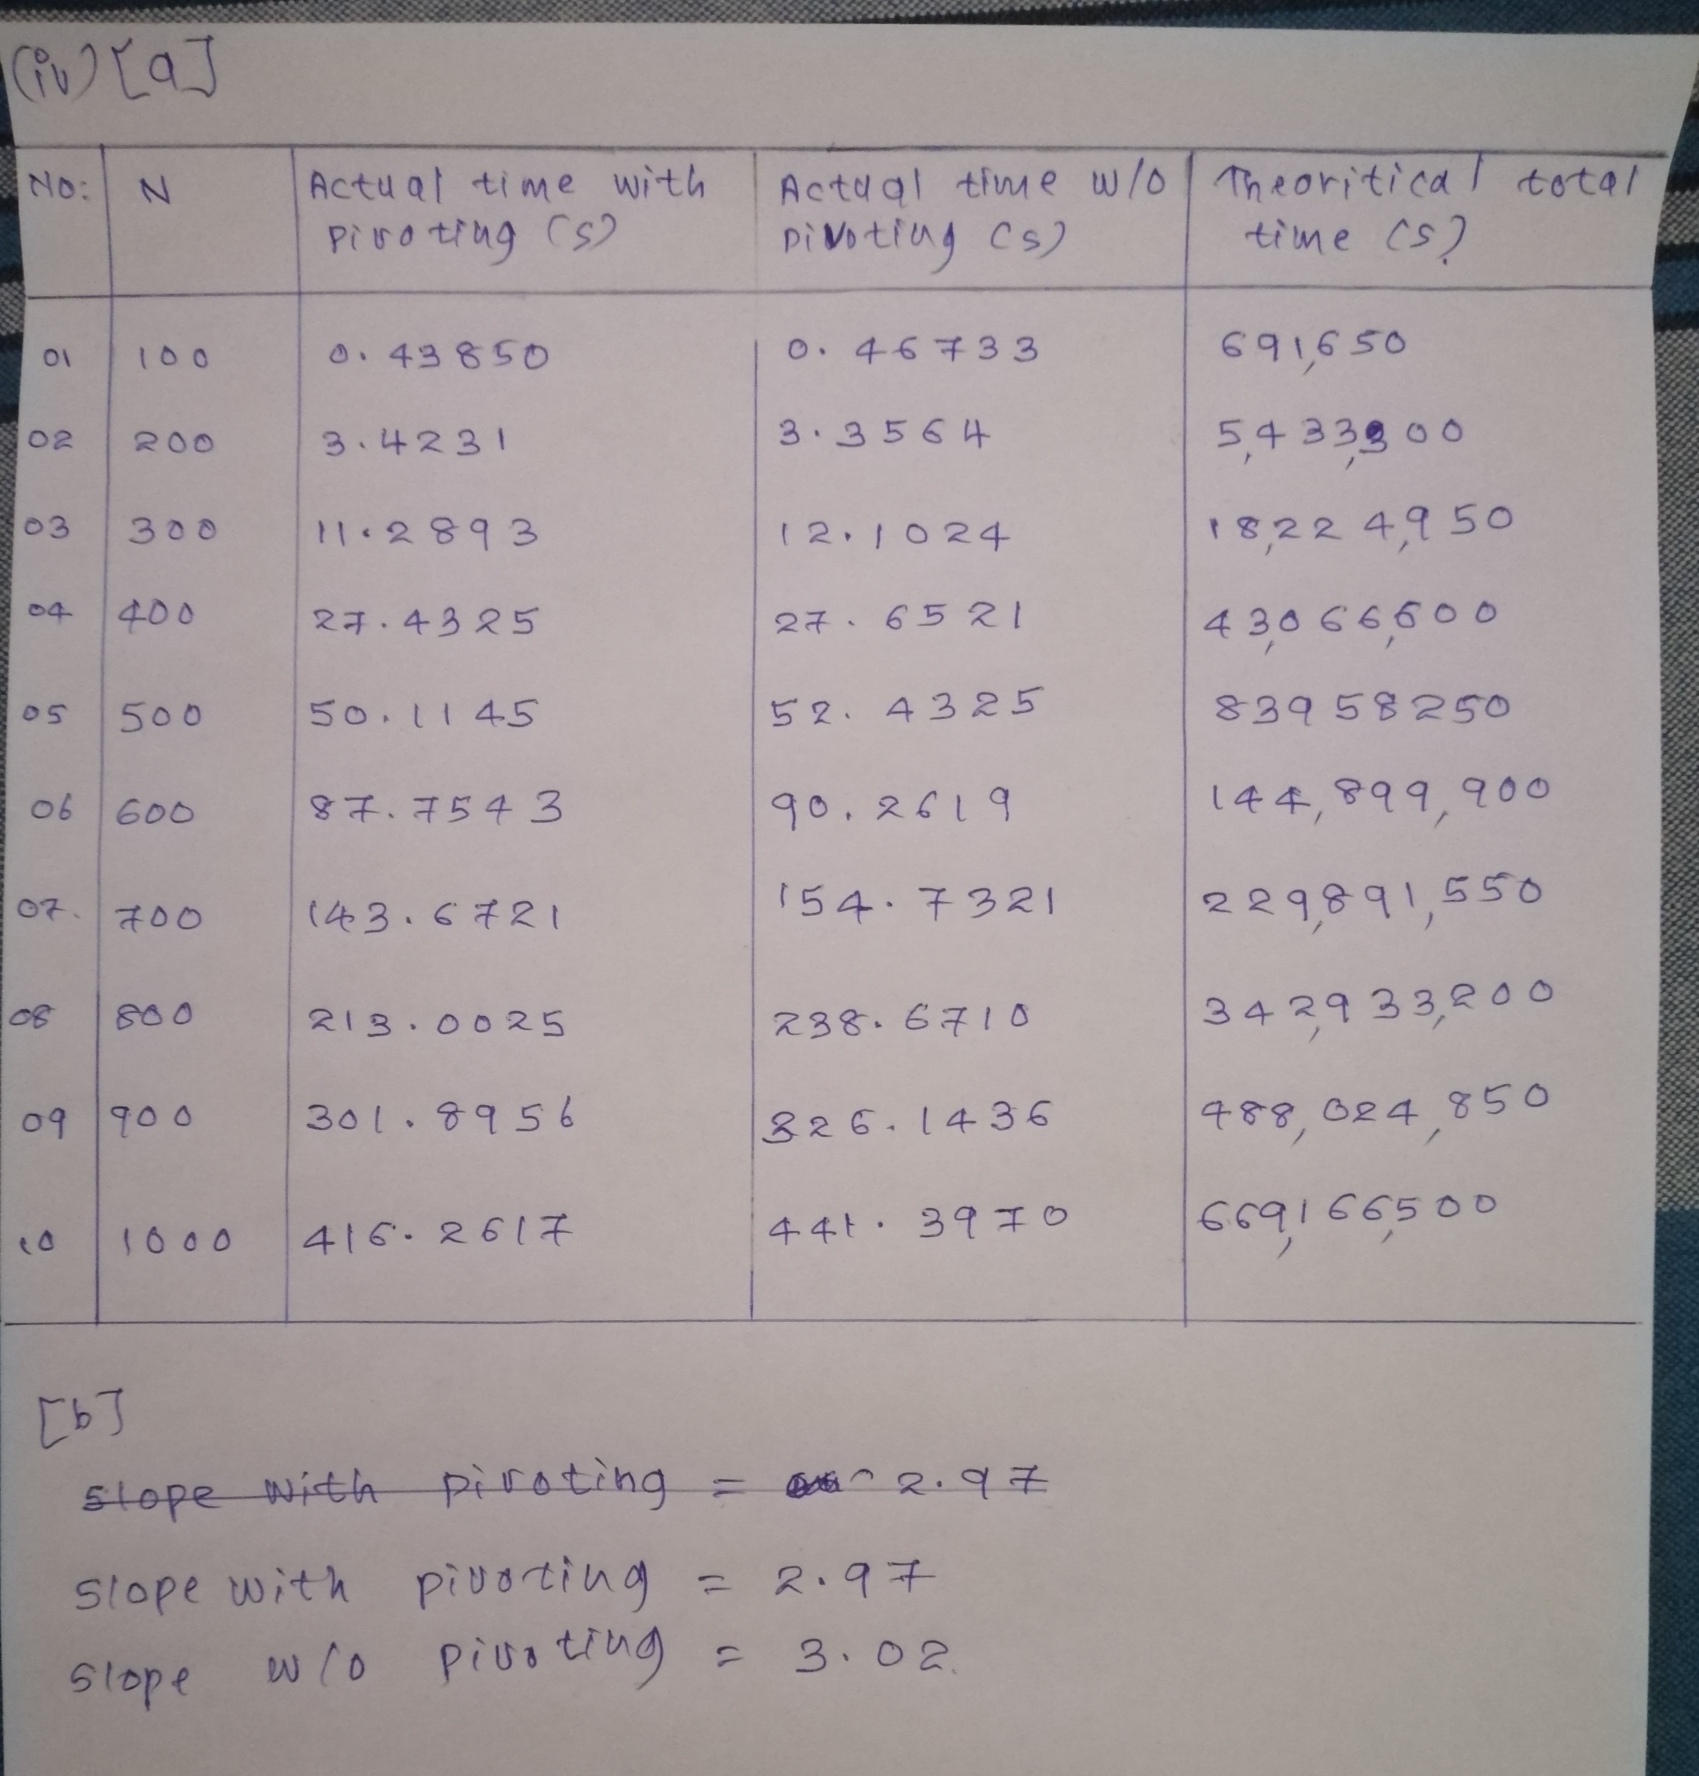 (iv) [a]
No: N Actual time with pivoting (s) Actual time w/o pivoting (s) Theoritical total time (s)
01 100 0.43850 0.46733 691,650
02 200 3.4231 3.3564 5,433,300
03 300 11.2893 12.1024 18,224,950
04 400 27.4325 27.6521 43,066,600
05 500 50.1145 52.4325 83958250
06 600 87.7543 90.2619 144,899,900
07. 700 143.6721 154.7321 229,891,550
08 800 213.0025 238.6710 342,933,200
09 900 301.8956 326.1436 488,024,850
10 1000 416.2617 441.3970 669,166,500
[b]
slope with pivoting = 2.97
slope with pivoting = 2.97
slope w/o pivoting = 3.02.